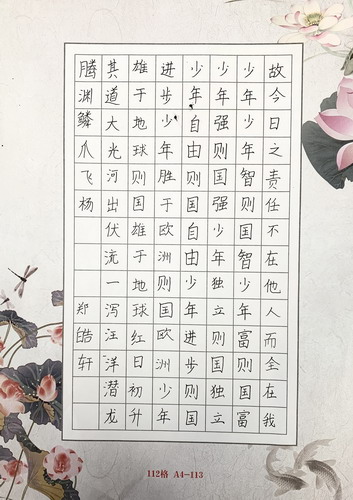 故今日之责任不在他人而全在我
少年少年智则国智少年富则国富
少年强则国强少年独立则国独立
少年自由则国自由少年进步则国
进步少年胜于欧洲则国欧洲少年
雄于地球则国雄于地球红日初升
其道大光河出伏流一泻汪洋潜龙
腾渊鳞爪飞杨
郑皓轩
112格 A4-113